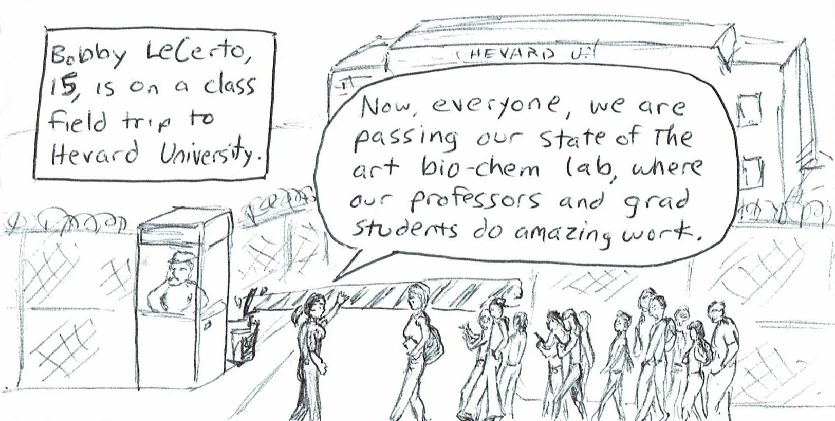 Bobby LeCerto,
15, is on a class
field trip to
Hevard University.
HEVARD U.
Now, everyone, we are
passing our state of the
art bio-chem lab, where
our professors and grad
students do amazing work.